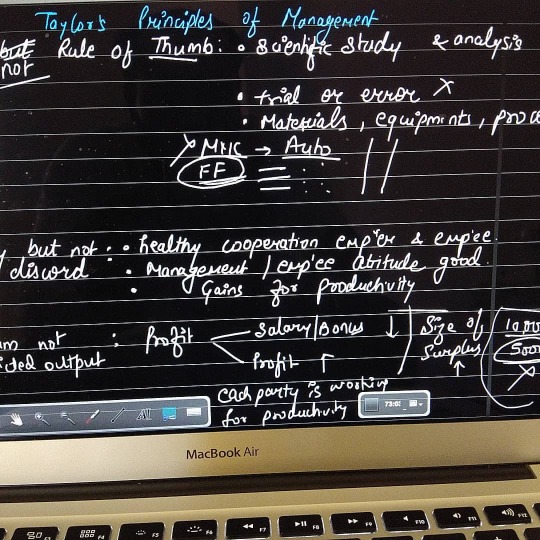 Taylor's Principles of Management
but Rule of Thumb: • Scientific study & analysis
not
• trial or error X
• Materials, equipments,
→ Auto
FF
but not: • healthy cooperation emp'er & emp'ee
discord • Management / emp'ee attitude good.
• Gains for productivity
not : Profit Salary/Bonus ↓ Size of
output Profit ↑ Surplus ↑
each party is working
for productivity
MacBook Air
F3 F4 F5 F6 F7 F8 F9 F10 F11 F12